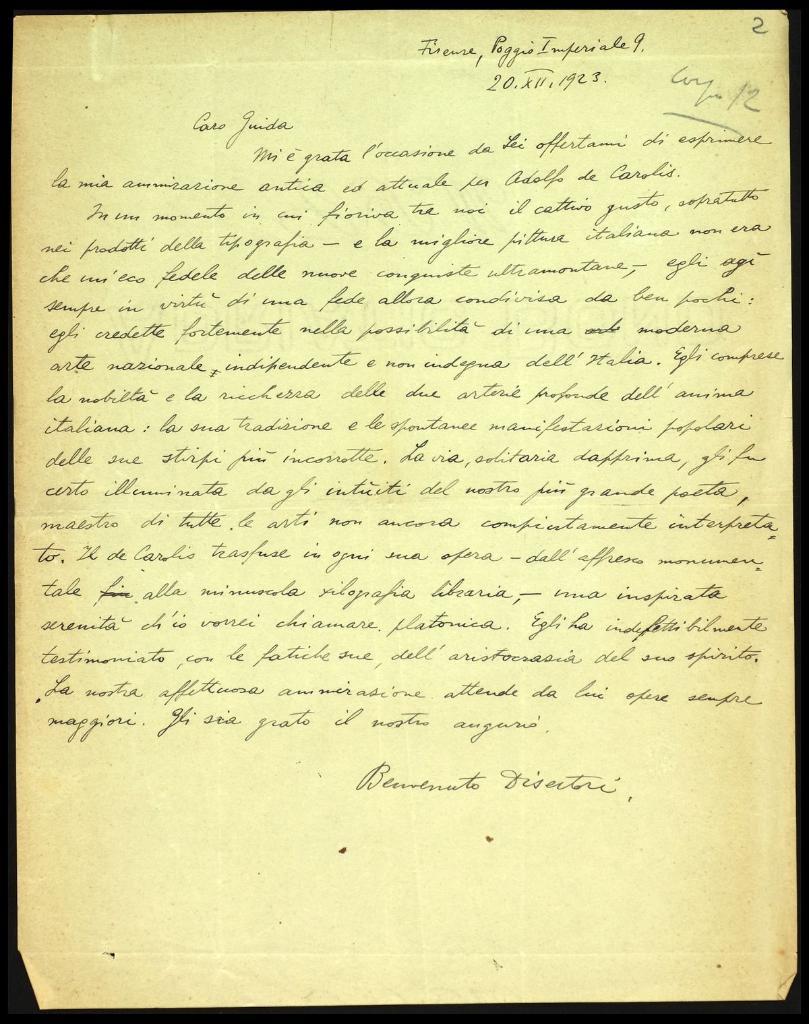 2
Firenze, Poggio Imperiale 9.
20.XII.1923.
12
Caro Guida
Mi è grata l'occasione da Lei offertami di esprimere
la mia ammirazione antica ed attuale per Adolfo de Carolis.
In un momento in cui fioriva tra noi il cattivo gusto, sopratutto
nei prodotti della tipografia – e la migliore pittura italiana non era
che un'eco fedele delle nuove conquiste ultramontane –, egli agì
sempre in virtù di una fede allora condivisa da ben pochi:
egli credette fortemente nella possibilità di una moderna
arte nazionale, indipendente e non indegna dell'Italia. Egli comprese
la nobiltà e la ricchezza delle due arterie profonde dell'anima
italiana: la sua tradizione e le spontanee manifestazioni popolari
delle sue stirpi più incorrotte. La via, solitaria dapprima, gli fu
certo illuminata dagli intùiti del nostro più grande poeta,
maestro di tutte le arti non ancora compiutamente interpreta-
to. Il de Carolis trasfuse in ogni sua opera – dall'affresco monumen-
tale fin alla minuscola xilografia libraria, – una inspirata
serenità ch'io vorrei chiamare platonica. Egli ha indefettibilmente
testimoniato, con le fatiche sue, dell'aristocrazia del suo spirito.
La nostra affettuosa ammirazione attende da lui opere sempre
maggiori. Gli sia grato il nostro augurio.
Benvenuto Disertori.